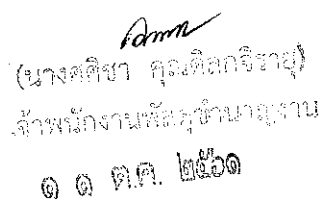 (นางศศิชา คุณดิลกจิรายุ)
เจ้าพนักงานพัสดุชำนาญงาน
๑ ๑ ต.ค. ๒๕๖๑